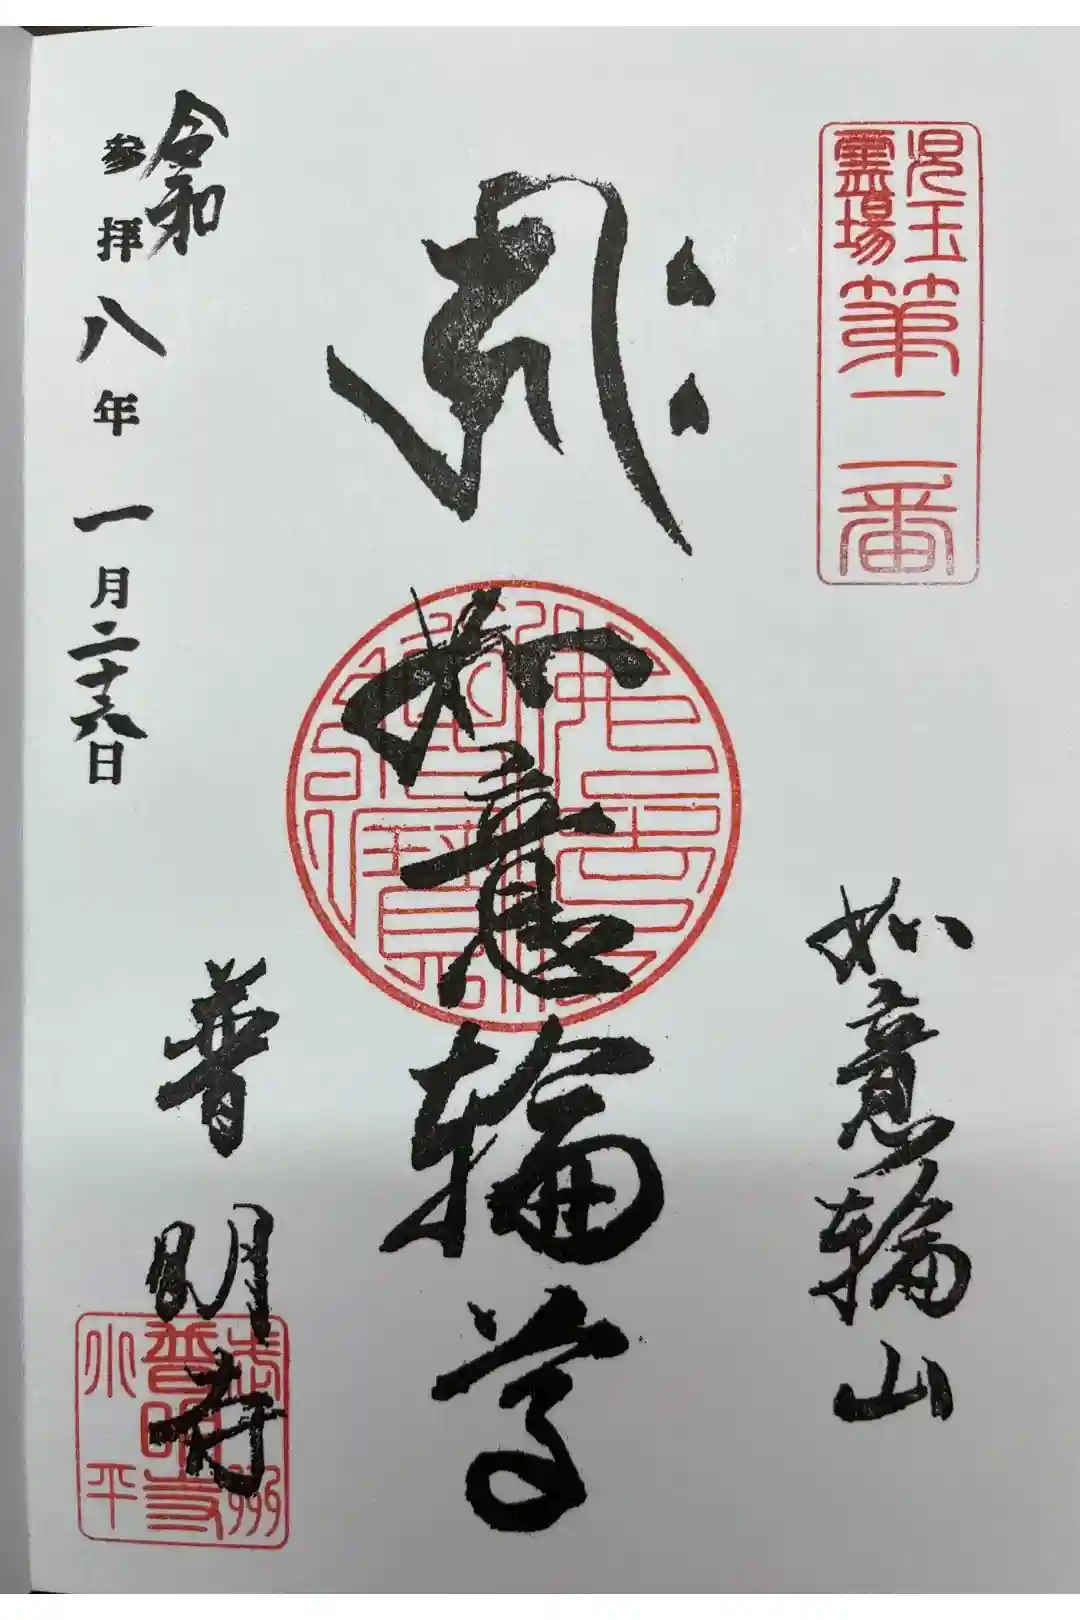 児玉
霊場
第二番
如意輪山
𑖮𑖿𑖨𑖱𑖾
如意輪尊
令和
参拝八年一月二十六日
普明寺
武州
普明寺
小平